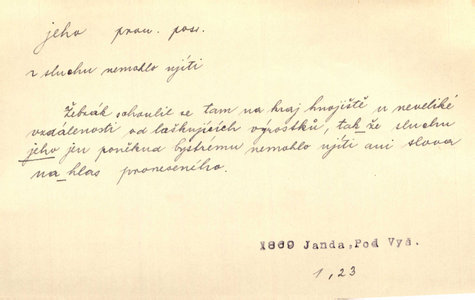 jeho pron. poss.
z sluchu nemohlo ujíti
Žebrák schoulil se tam na kraj hnojiště u neveliké
vzdálenosti od laškujících výrostků, tak že sluchu
jeho jen poněkud bystrému nemohlo ujíti ani slova
na hlas proneseného.
1869 Janda, Pod Vyš.
1, 23